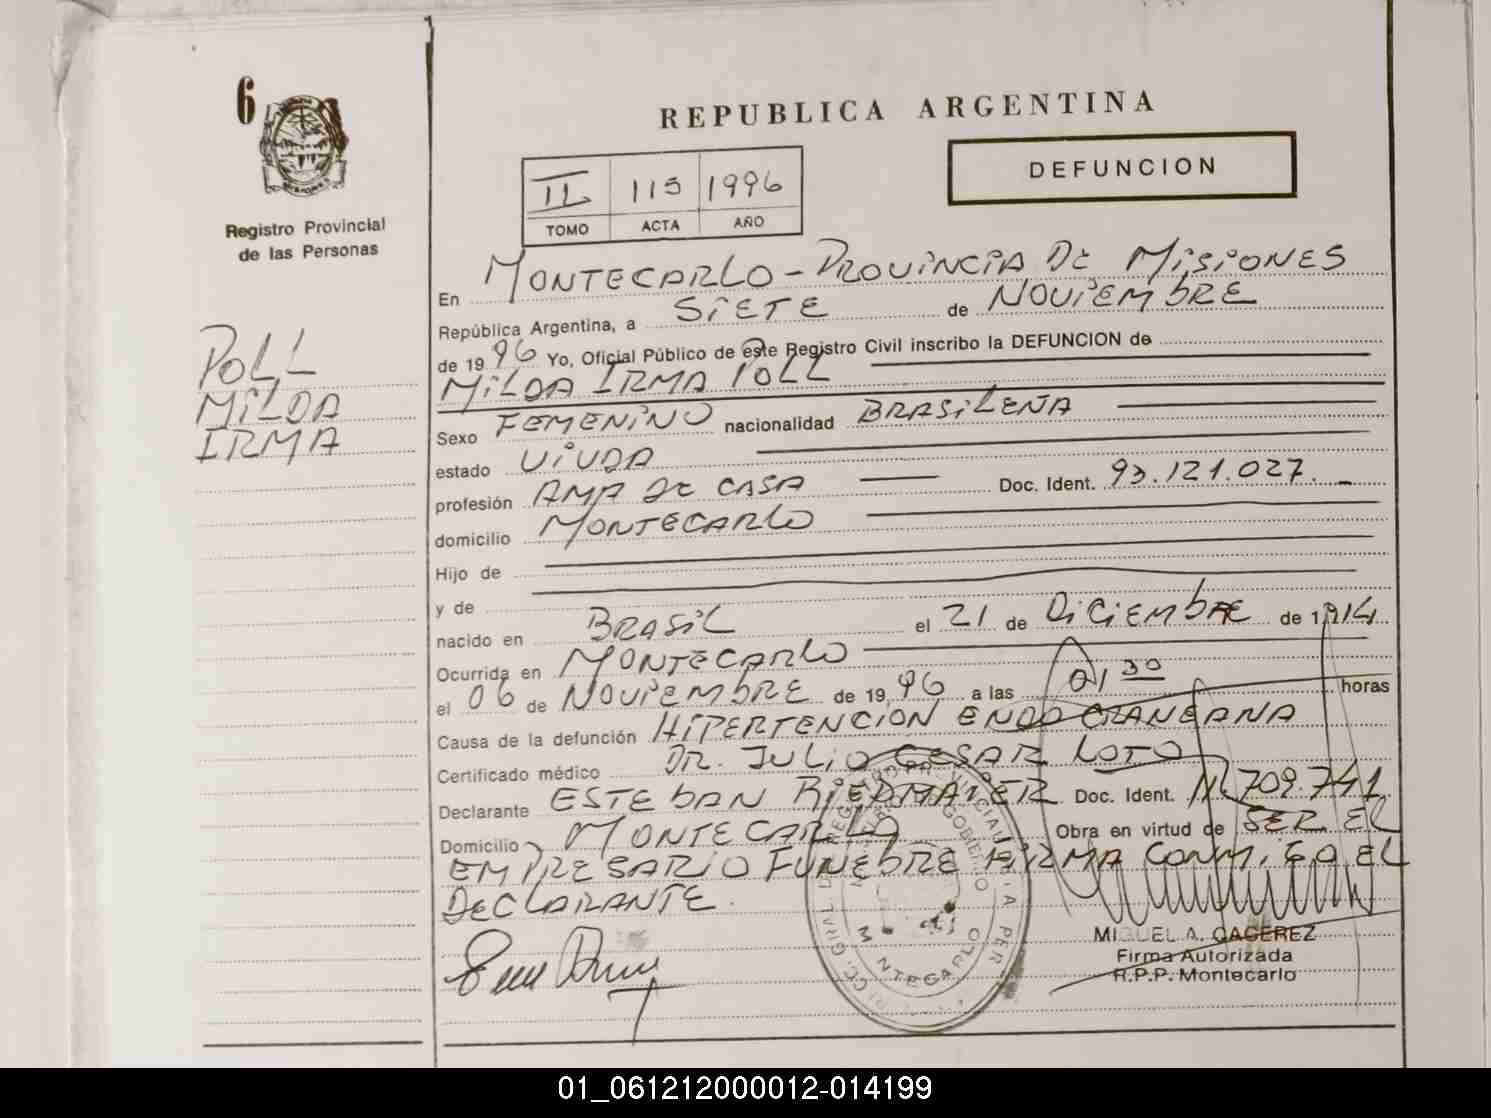 6
REPUBLICA ARGENTINA
DEFUNCION
II 115 1996
TOMO ACTA AÑO
Registro Provincial
de las Personas
POLL
MILDA
IRMA
En MONTECARLO - PROVINCIA DE MISIONES
República Argentina, a SIETE de NOVIEMBRE
de 1996 Yo, Oficial Público de este Registro Civil inscribo la DEFUNCION de
MILDA IRMA POLL
Sexo FEMENINO nacionalidad BRASILEÑA
estado VIUDA
profesión AMA DE CASA Doc. Ident. 93.121.027.-
domicilio MONTECARLO
Hijo de
y de
nacido en BRASIL el 21 de DICIEMBRE de 1914
Ocurrida en MONTECARLO
el 06 de NOVIEMBRE de 1996 a las 01 30 horas
Causa de la defunción HIPERTENCION ENDOCRANEANA
Certificado médico DR. JULIO CESAR LOTO
Declarante ESTEBAN RIEDMAIER Doc. Ident. 709.741
Domicilio MONTECARLO Obra en virtud de SER EL
EMPRESARIO FUNEBRE FIRMA CONMIGO EL
DECLARANTE.
MONTECARLO
MIGUEL A. CACEREZ
Firma Autorizada
R.P.P. Montecarlo
01_061212000012-014199